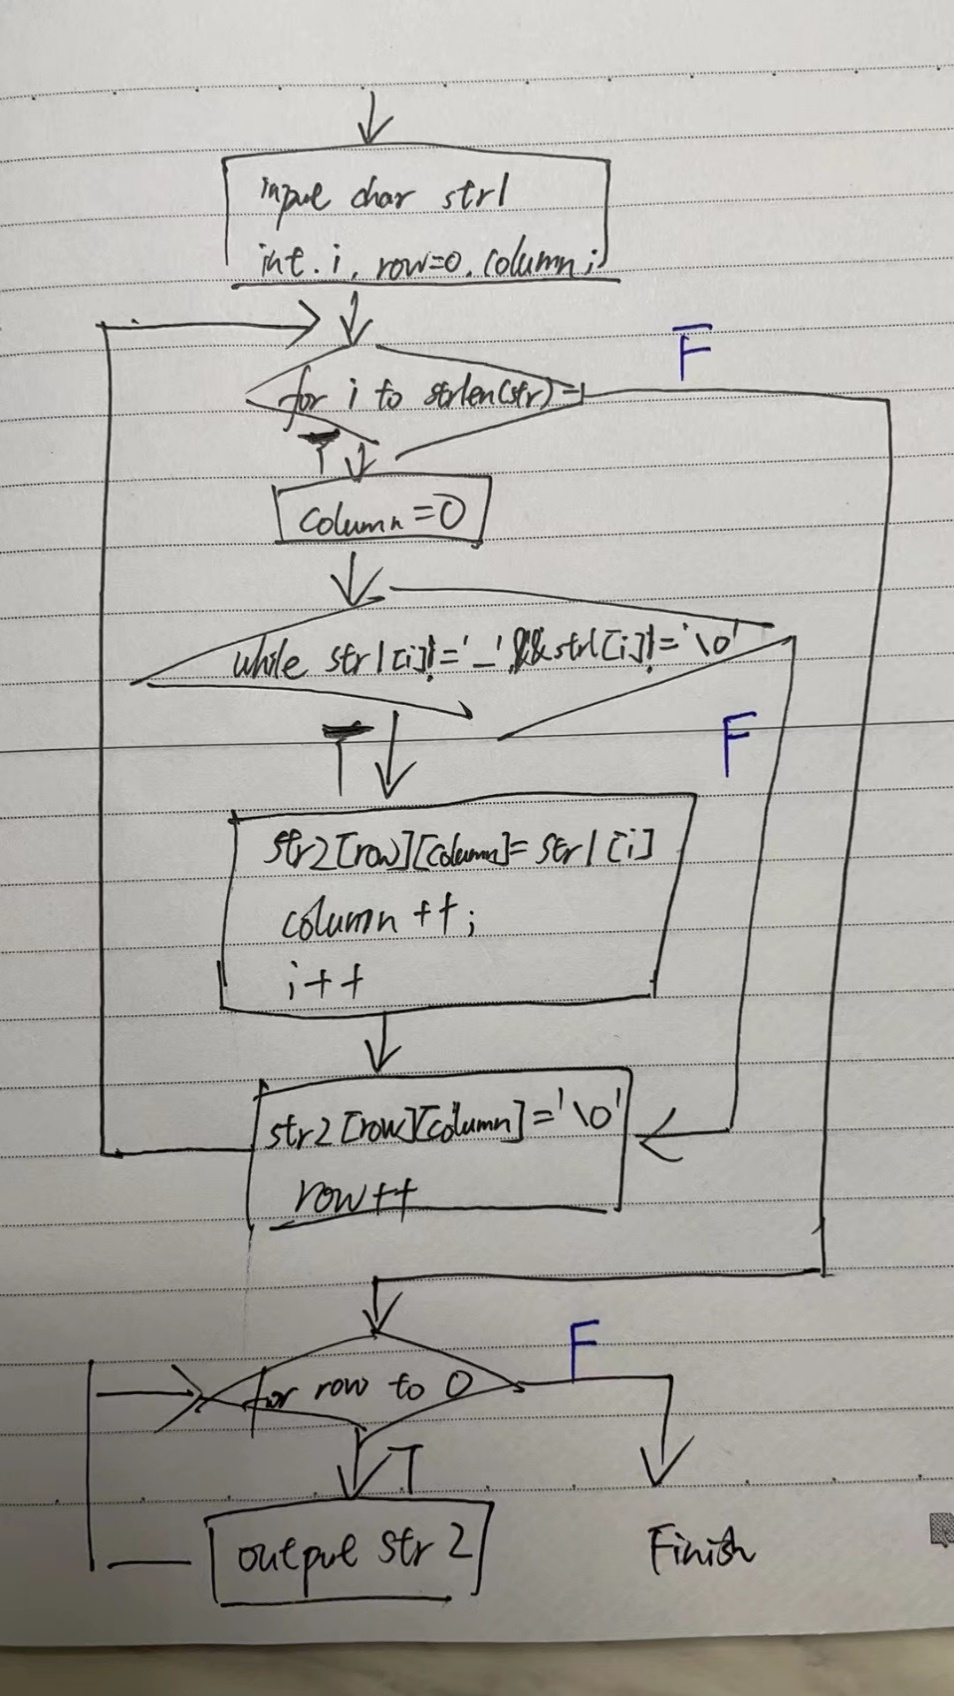 input char str1
int. i, row=0, column;
for i to strlen(str)-1
F
T
column=0
while str1[i]!='_'&&str1[i]!='\0'
T
F
str2[row][column]=str1[i]
column++;
i++
str2[row][column]='\0'
row++
for row to 0
F
T
output str2
Finish